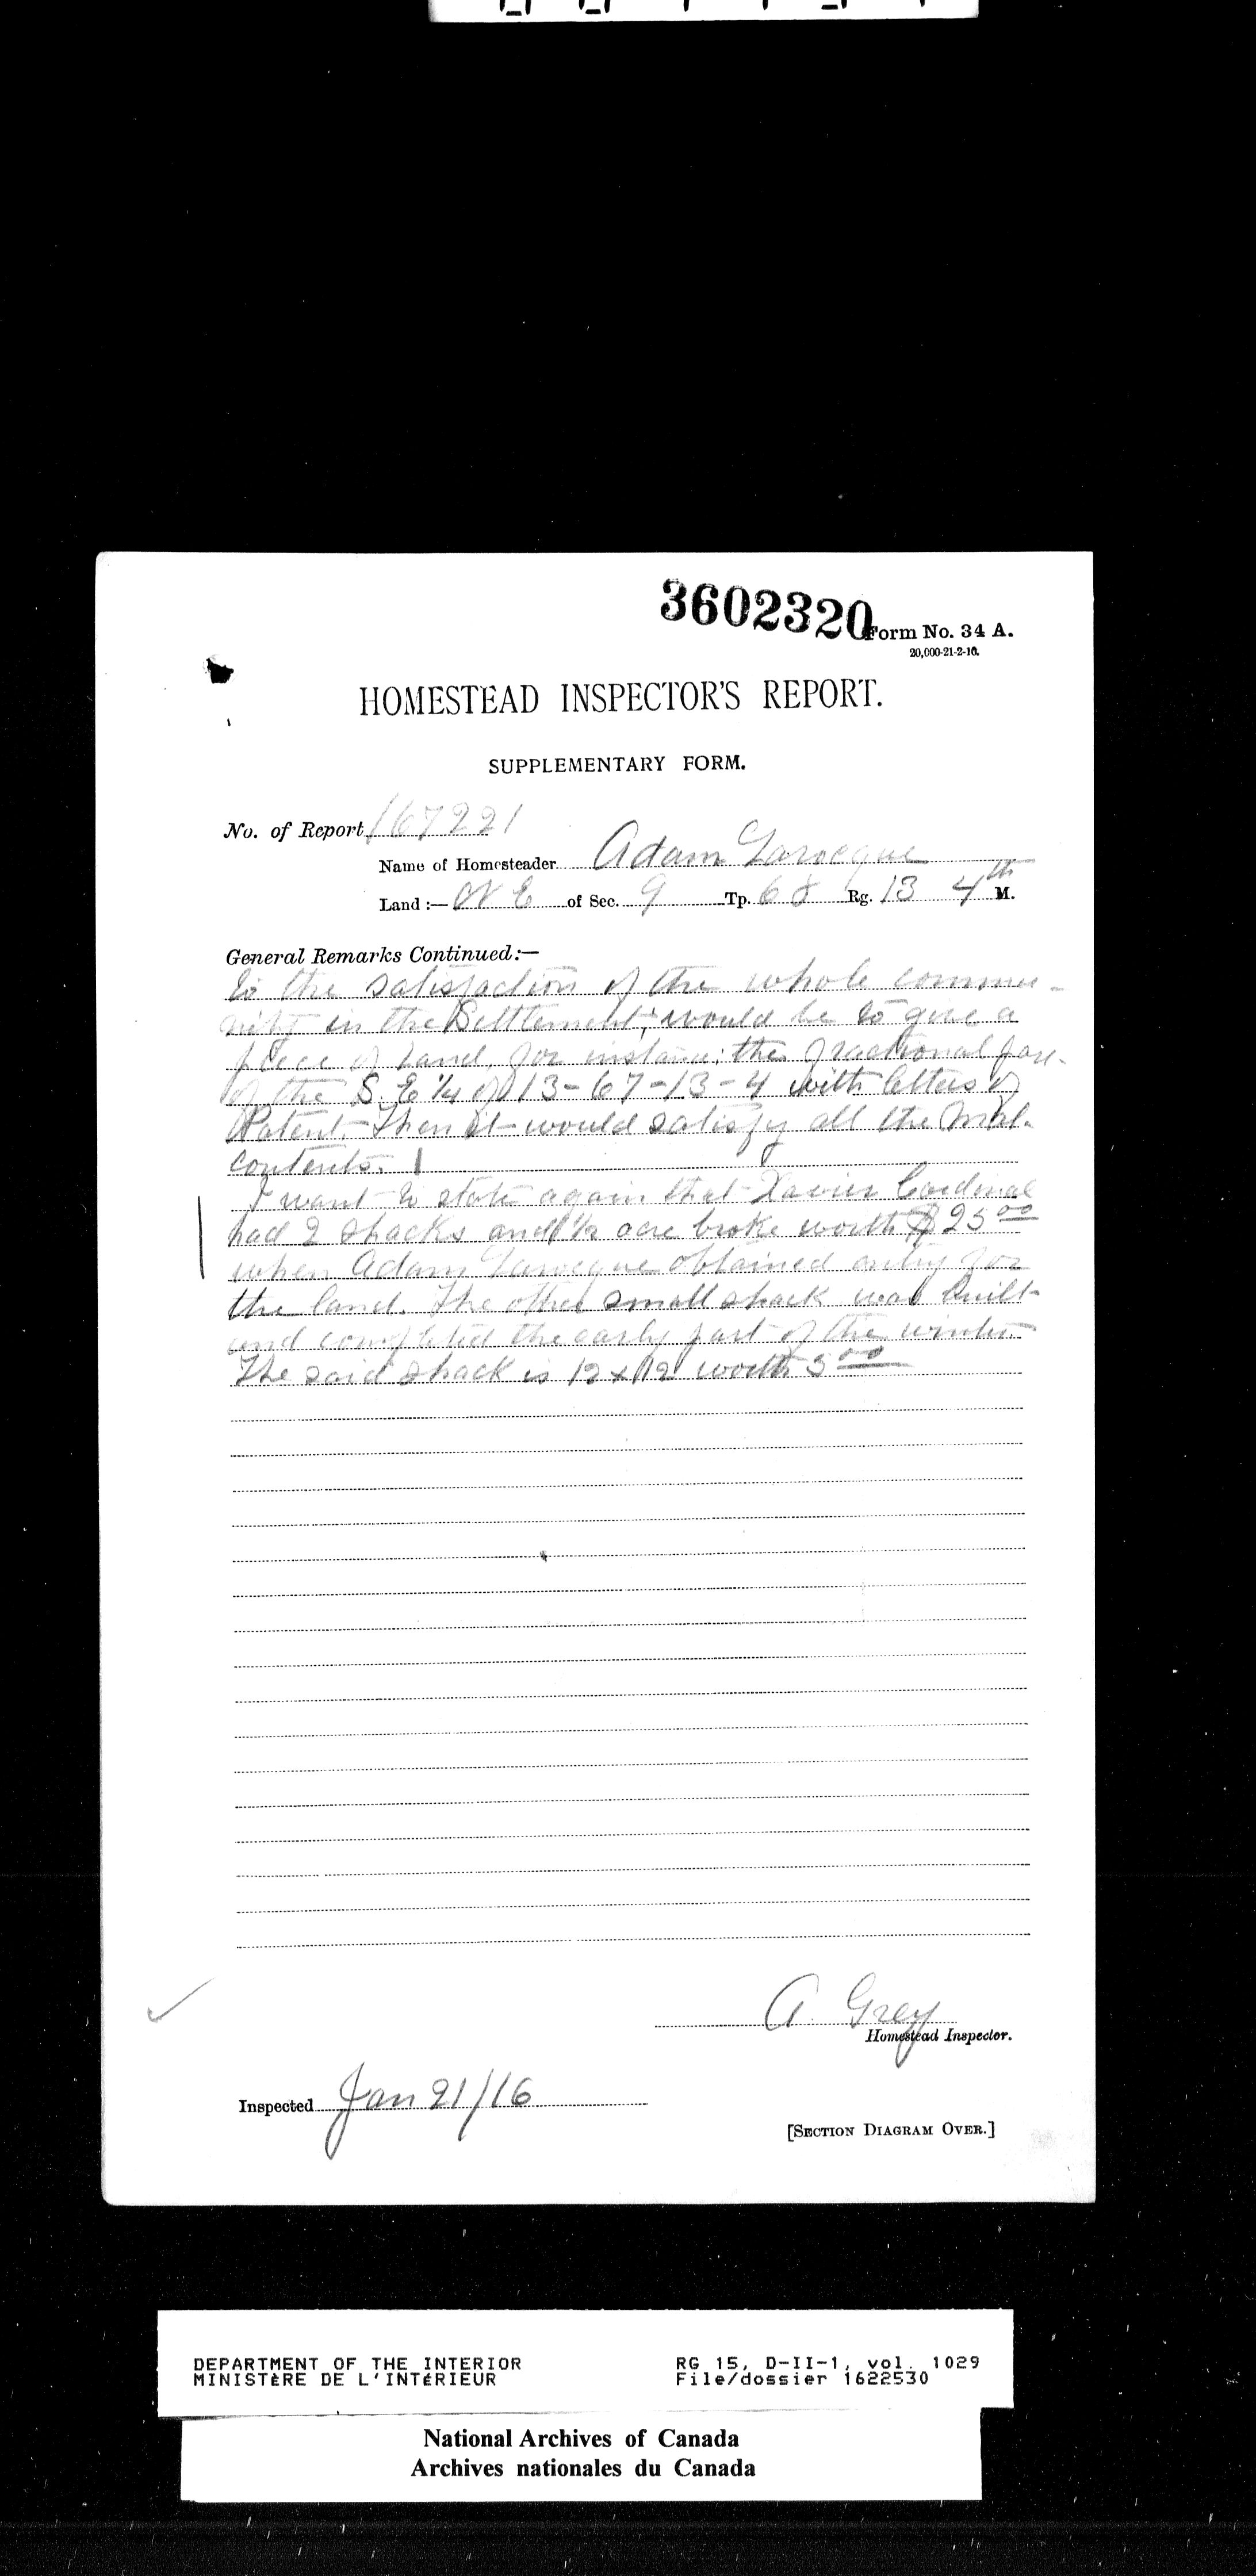 3602320
Form No. 34 A.
20,000-21-2-16.
HOMESTEAD INSPECTOR'S REPORT.
SUPPLEMENTARY FORM.
No. of Report 167221
Name of Homesteader Adam Larocque
Land :— N E of Sec. 9 Tp. 68 Rg. 13 4th M.
General Remarks Continued:—
to the satisfaction of the whole commu-
nity in the Settlement, would be to give a
piece of land, for instance: the fractional part
of the S. E 1/4 of 13-67-13-4 with letters of
Patent. Then it would satisfy all the Mal-
contents.
I want to state again that Xavier Cardinal
had 2 shacks and 1/2 acre broke worth $25 00
when Adam Larocque obtained entry for
the land. The other small shack was built
and completed the early part of the winter.
The said shack is 12 x 12 worth 5 00
A. Grey
Homestead Inspector.
Inspected Jan 21/16
[SECTION DIAGRAM OVER.]
DEPARTMENT OF THE INTERIOR
MINISTÈRE DE L'INTÉRIEUR
RG 15, D-II-1, vol. 1029
File/dossier 1622530
National Archives of Canada
Archives nationales du Canada